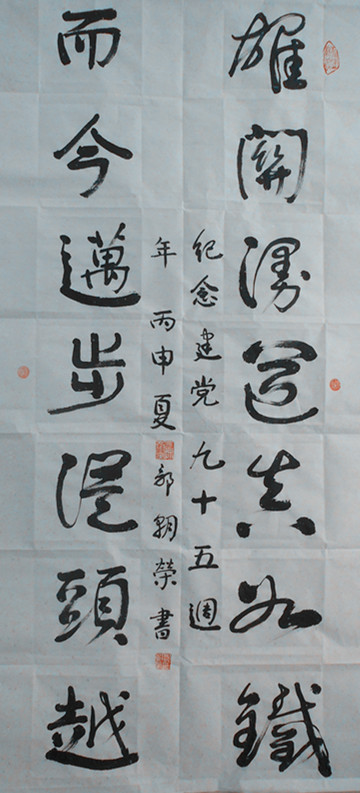 雄關漫道真如鐵
而今邁步從頭越
纪念建党九十五週
年 丙申夏 郭榮書